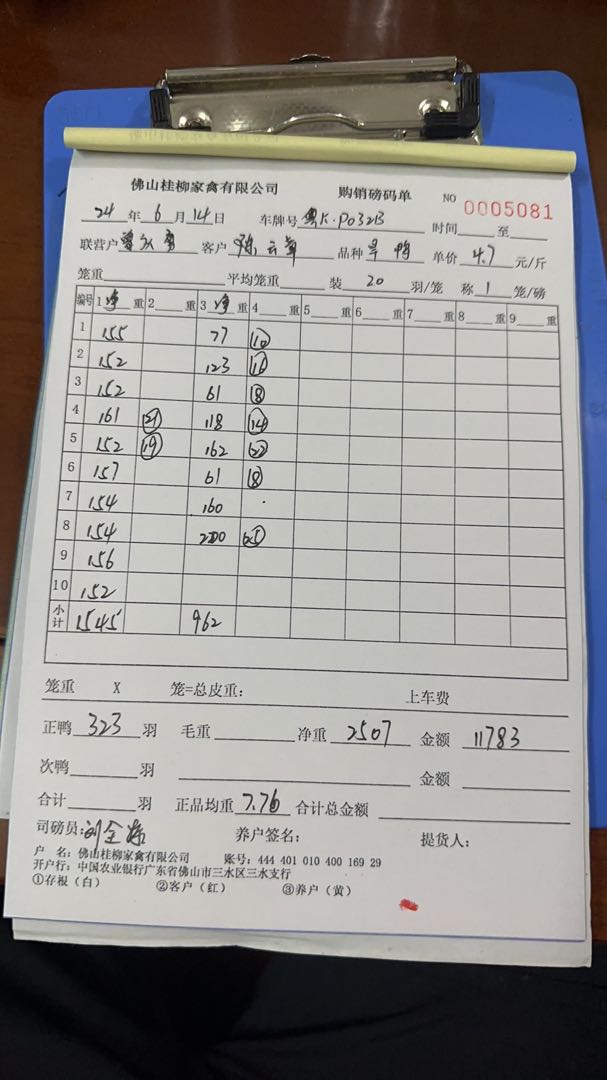 佛山桂柳家禽有限公司 购销磅码单 NO 0005081
24 年 6 月 14 日 车牌号 粤K·P032B 时间 至
联营户 客户 品种 旱鸭 单价 4.7 元/斤
笼重 平均笼重 装 20 羽/笼 称 1 笼/磅
编号 1 净 重 2 重 3 净 重 4 重 5 重 6 重 7 重 8 重 9 重
1 155 77 10
2 152 123 16
3 152 61 8
4 161 21 118 14
5 152 19 162 22
6 157 61 8
7 154 160
8 154 200 25
9 156
10 152
小计 1545 962
笼重 X 笼=总皮重: 上车费
正鸭 323 羽 毛重 净重 2507 金额 11783
次鸭 羽 金额
合计 羽 正品均重 7.76 合计总金额
司磅员: 养户签名: 提货人:
户 名: 佛山桂柳家禽有限公司 账号: 444 401 010 400 169 29
开户行: 中国农业银行广东省佛山市三水区三水支行
①存根（白） ②客户（红） ③养户（黄）